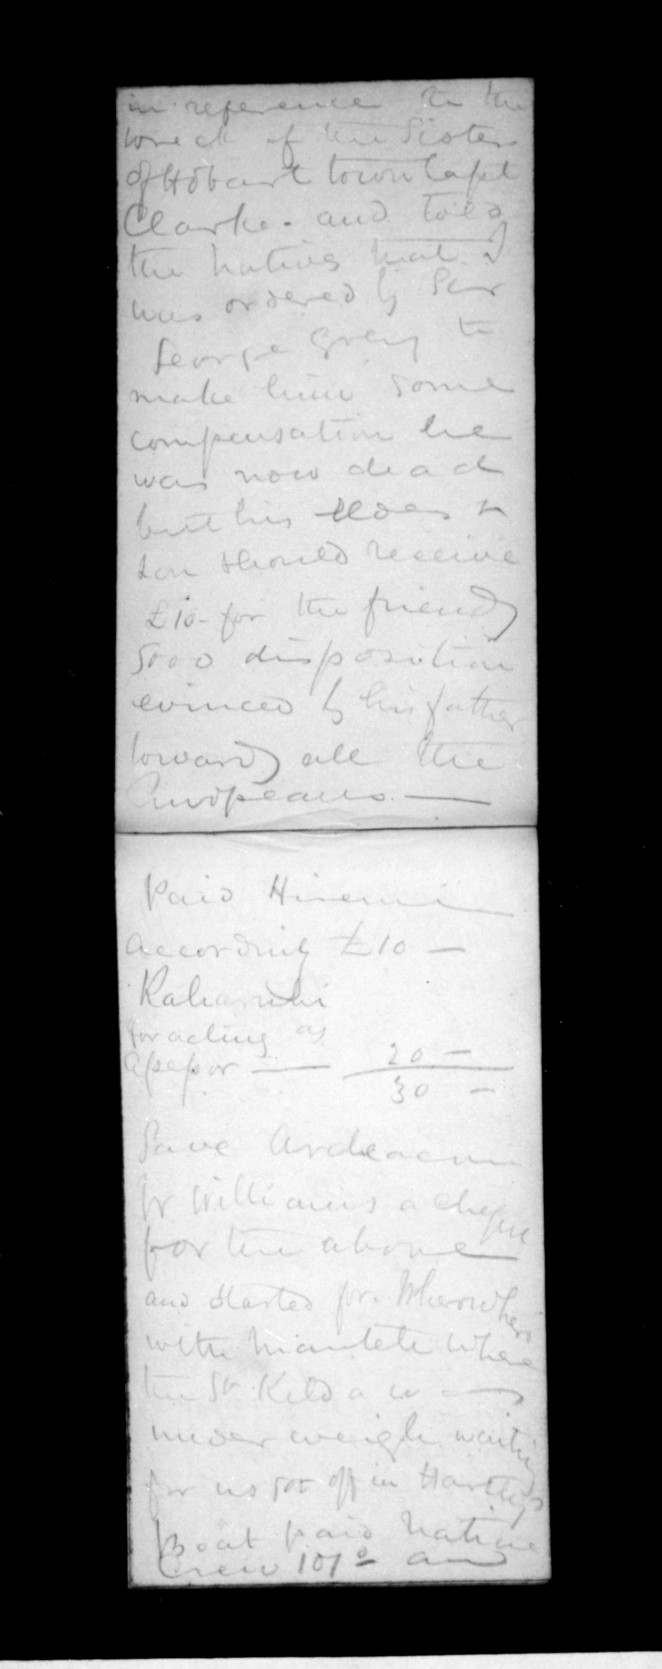 in reference to the
wreck of the Sisters
of Hobart town Capt
Clarke - and told
the natives that I
was ordered by Sir
George Grey to
make him some
compensation he
was now dead
but his eldest
son should receive
£10 - for the friendly
good disposition
evinced by his father
towards all the
Europeans. —
Paid Hiremi
accordingly £10 —
for acting as
assessor — 20 —
30 —
Gave Ardeacon
W Williams a cheque
for the above
and started for Wherowhero
with where
the St Kilda was
under weigh waiting
for us got off in Hartley's
Boat paid native
Crew 10/- and